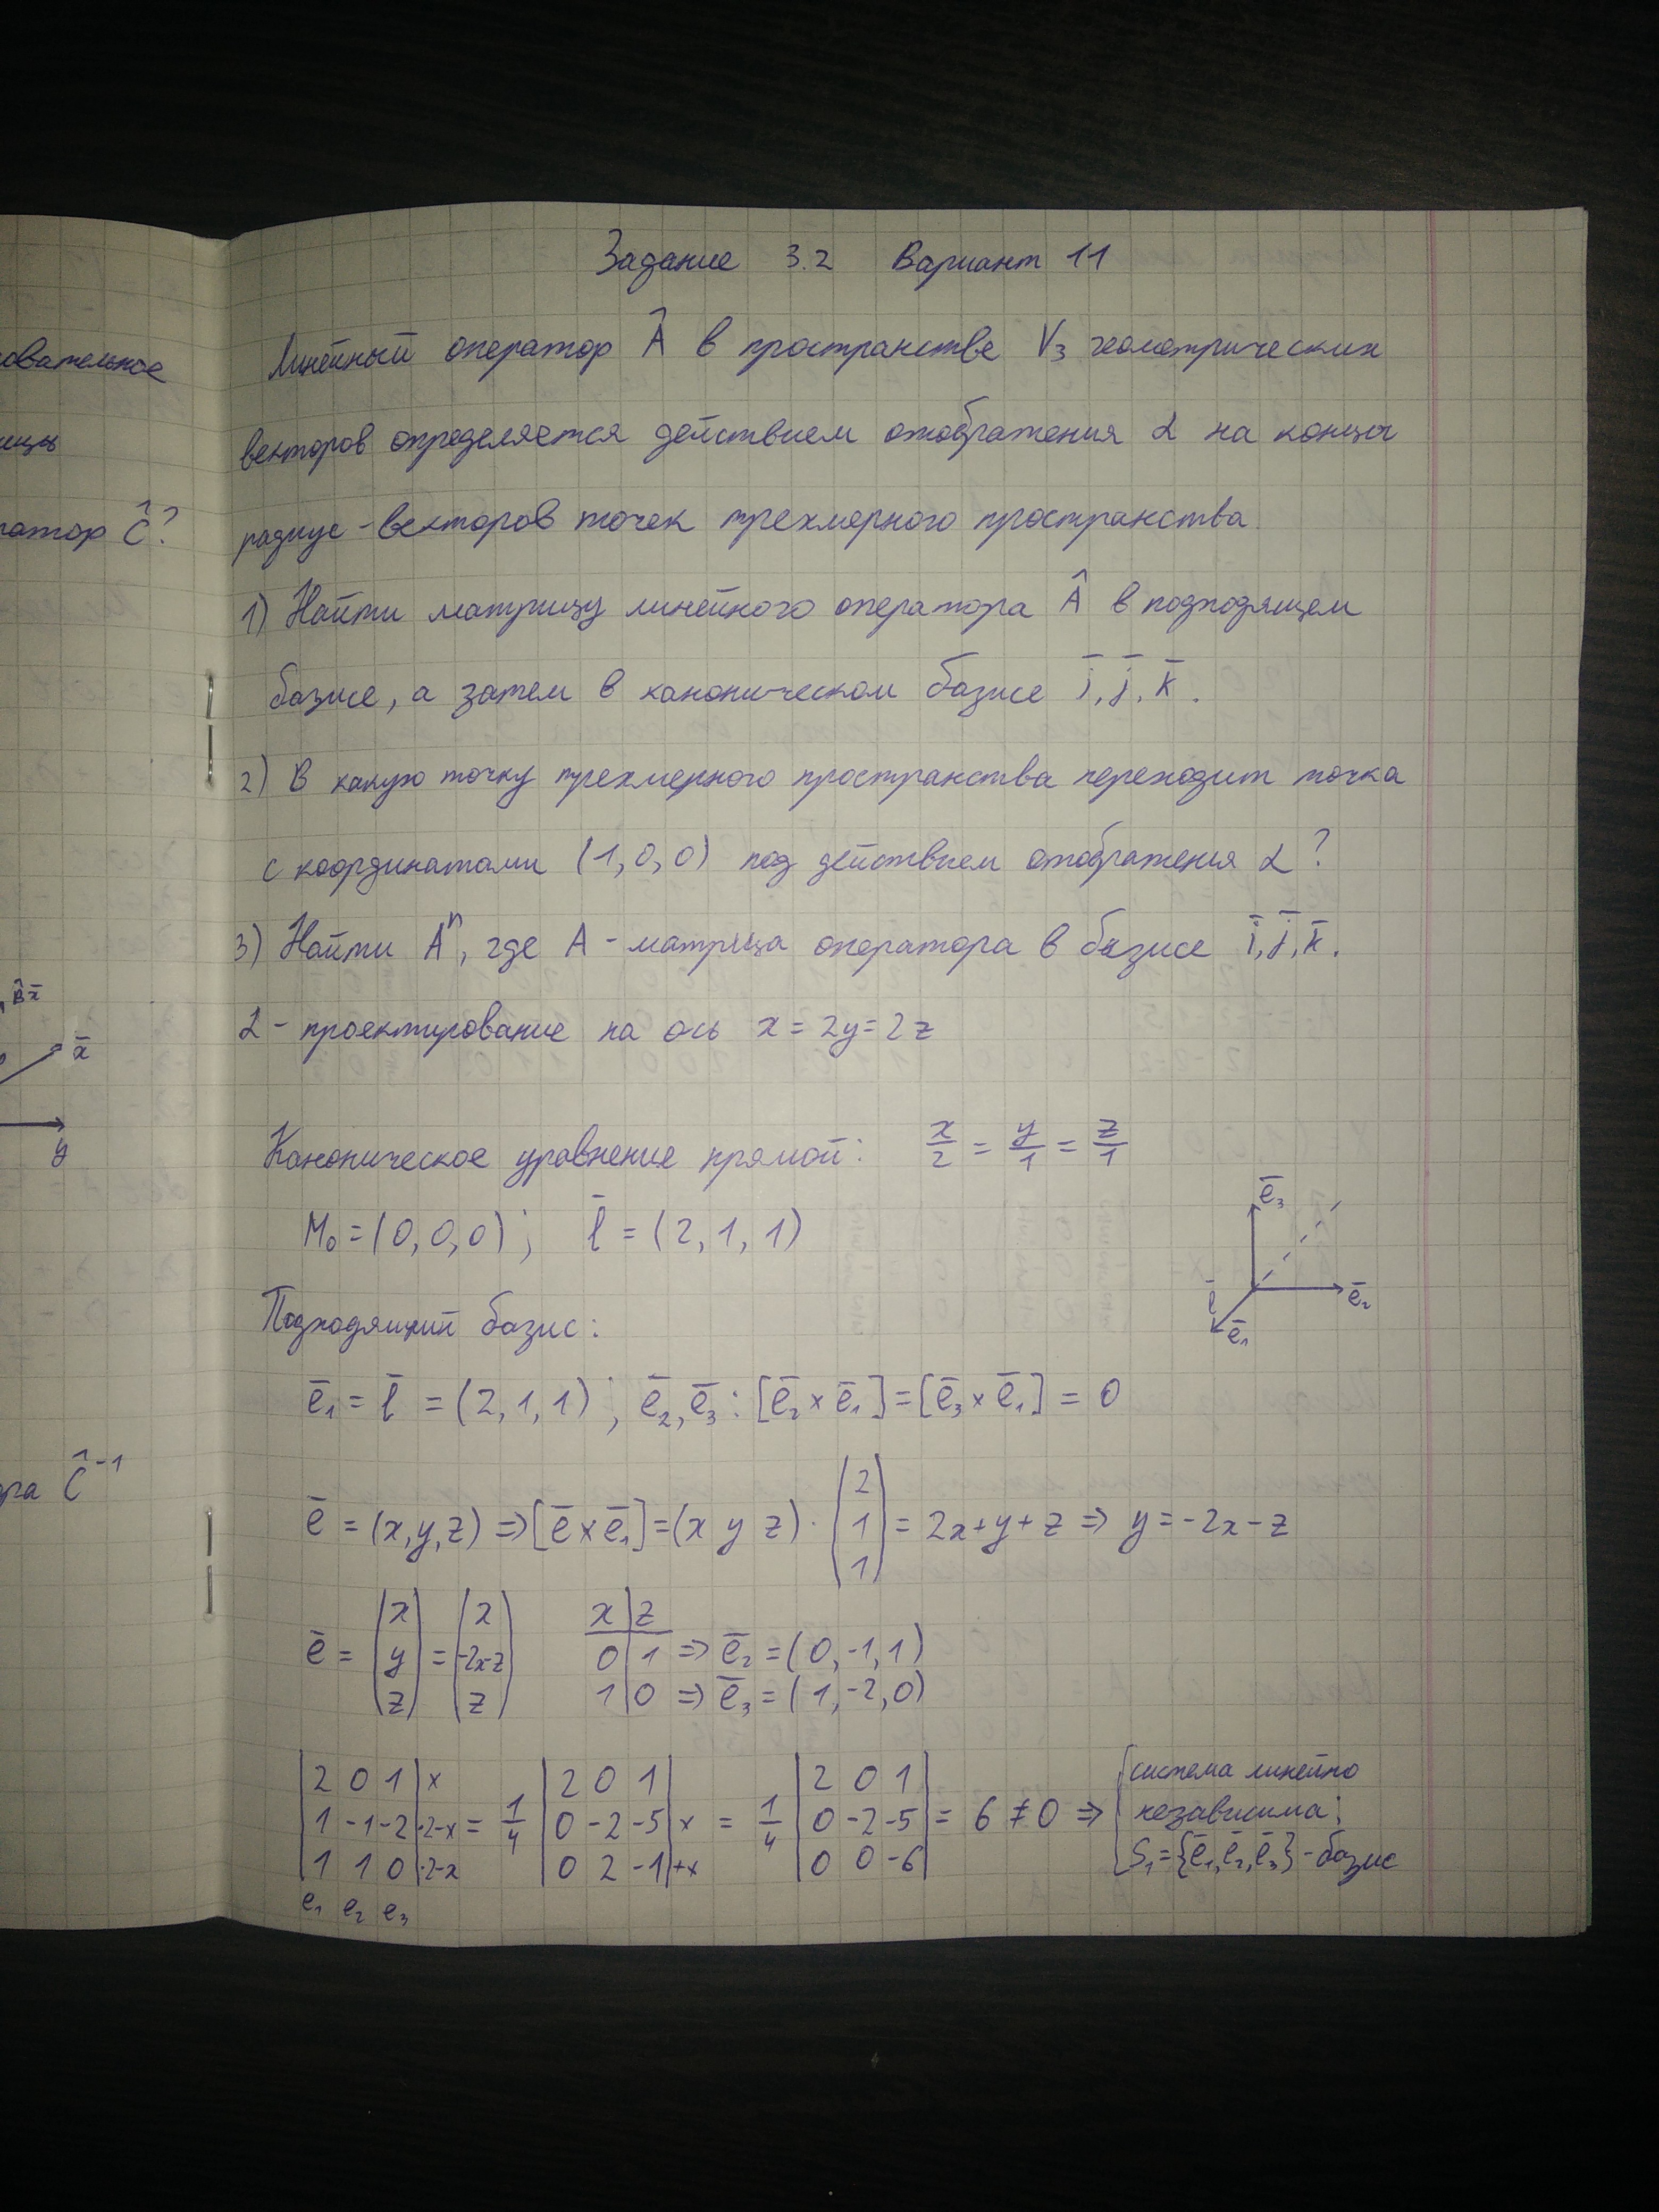 Задание 3.2 Вариант 11
Линейный оператор Â в пространстве V₃ геометрических
векторов определяется действием отображения α на концы
радиус-векторов точек трехмерного пространства.
1) Найти матрицу линейного оператора Â в подходящем
базисе, а затем в каноническом базисе i̅, j̅, k̅.
2) В какую точку трехмерного пространства переходит точка
с координатами (1,0,0) под действием отображения α?
3) Найти Aⁿ, где A - матрица оператора в базисе i̅, j̅, k̅.
α - проектирование на ось x = 2y = 2z
Каноническое уравнение прямой: x/2 = y/1 = z/1
M₀ = (0,0,0); l̅ = (2,1,1)
e̅₃
e̅₂
l̅
e̅₁
Подходящий базис:
e̅₁ = l̅ = (2,1,1); e̅₂, e̅₃ : [e̅₂ × e̅₁] = [e̅₃ × e̅₁] = 0
e̅ = (x,y,z) ⇒ [e̅ × e̅₁] = (x y z) · (2 1 1) = 2x+y+z ⇒ y = -2x-z
e̅ = (x y z) = (x -2x-z z)
x | z
0 | 1 ⇒ e̅₂ = (0,-1,1)
1 | 0 ⇒ e̅₃ = (1,-2,0)
|2 0 1| x |2 0 1| |2 0 1| система линейно
|1 -1 -2| ·2-x = 1/4 |0 -2 -5| x = 1/4 |0 -2 -5| = 6 ≠ 0 ⇒ независима;
|1 1 0| ·2-x |0 2 -1| +x |0 0 -6| S₁ = {e̅₁, e̅₂, e̅₃} - базис
e₁ e₂ e₃
овательное
ицы
ратор Ĉ?
B̂x̅
x̅
y
ра Ĉ⁻¹